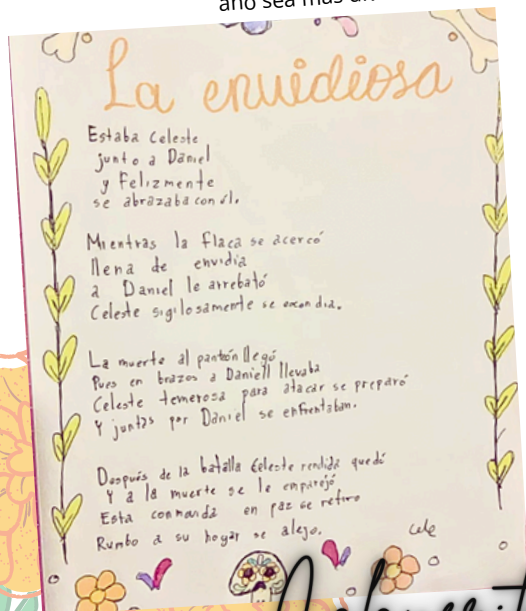 año sea más
La envidiosa
Estaba Celeste
junto a Daniel
y Felizmente
se abrazaba con él.
Mientras la flaca se acercó
llena de envidia
a Daniel le arrebató
Celeste sigilosamente se escondia.
La muerte al panteón llegó
Pues en brazos a Daniell llevaba
Celeste temerosa para atacar se preparó
Y juntas por Daniel se enfrentaban.
Después de la batalla Celeste rendida quedó
Y a la muerte se le emparejó
Esta conmovida en paz se retiro
Rumbo a su hogar se alejo.
Cele